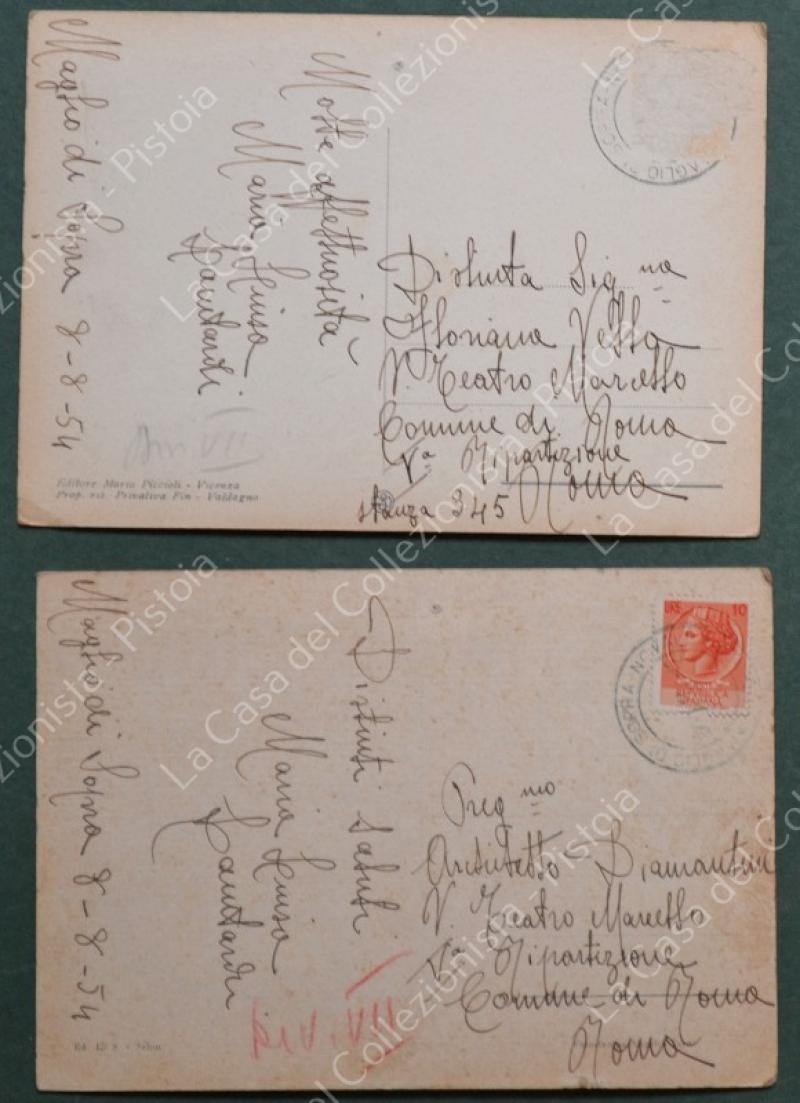 Maglio di Sopra 8-8-54
Molte affettuosità
Maria Luisa
Distinta Sig.na
Floriana Vella
V. Teatro Marcello
Comune di Roma
Va Ripartizione
Roma
stanza 345
VII
Editore Mario Piccioli - Vicenza
Prop. ris. Privativa Fin - Valdagno
AGLIO DI SOPRA
Maglio di Sopra 8-8-54
Distinti Saluti
Maria Luisa
Preg.mo
Architetto Diamantini
V. Teatro Marcello
Va Ripartizione
Comune di Roma
Roma
VII
LIRE 10
REPUBBLICA
ITALIANA
La Casa del Collezionista - Pistoia